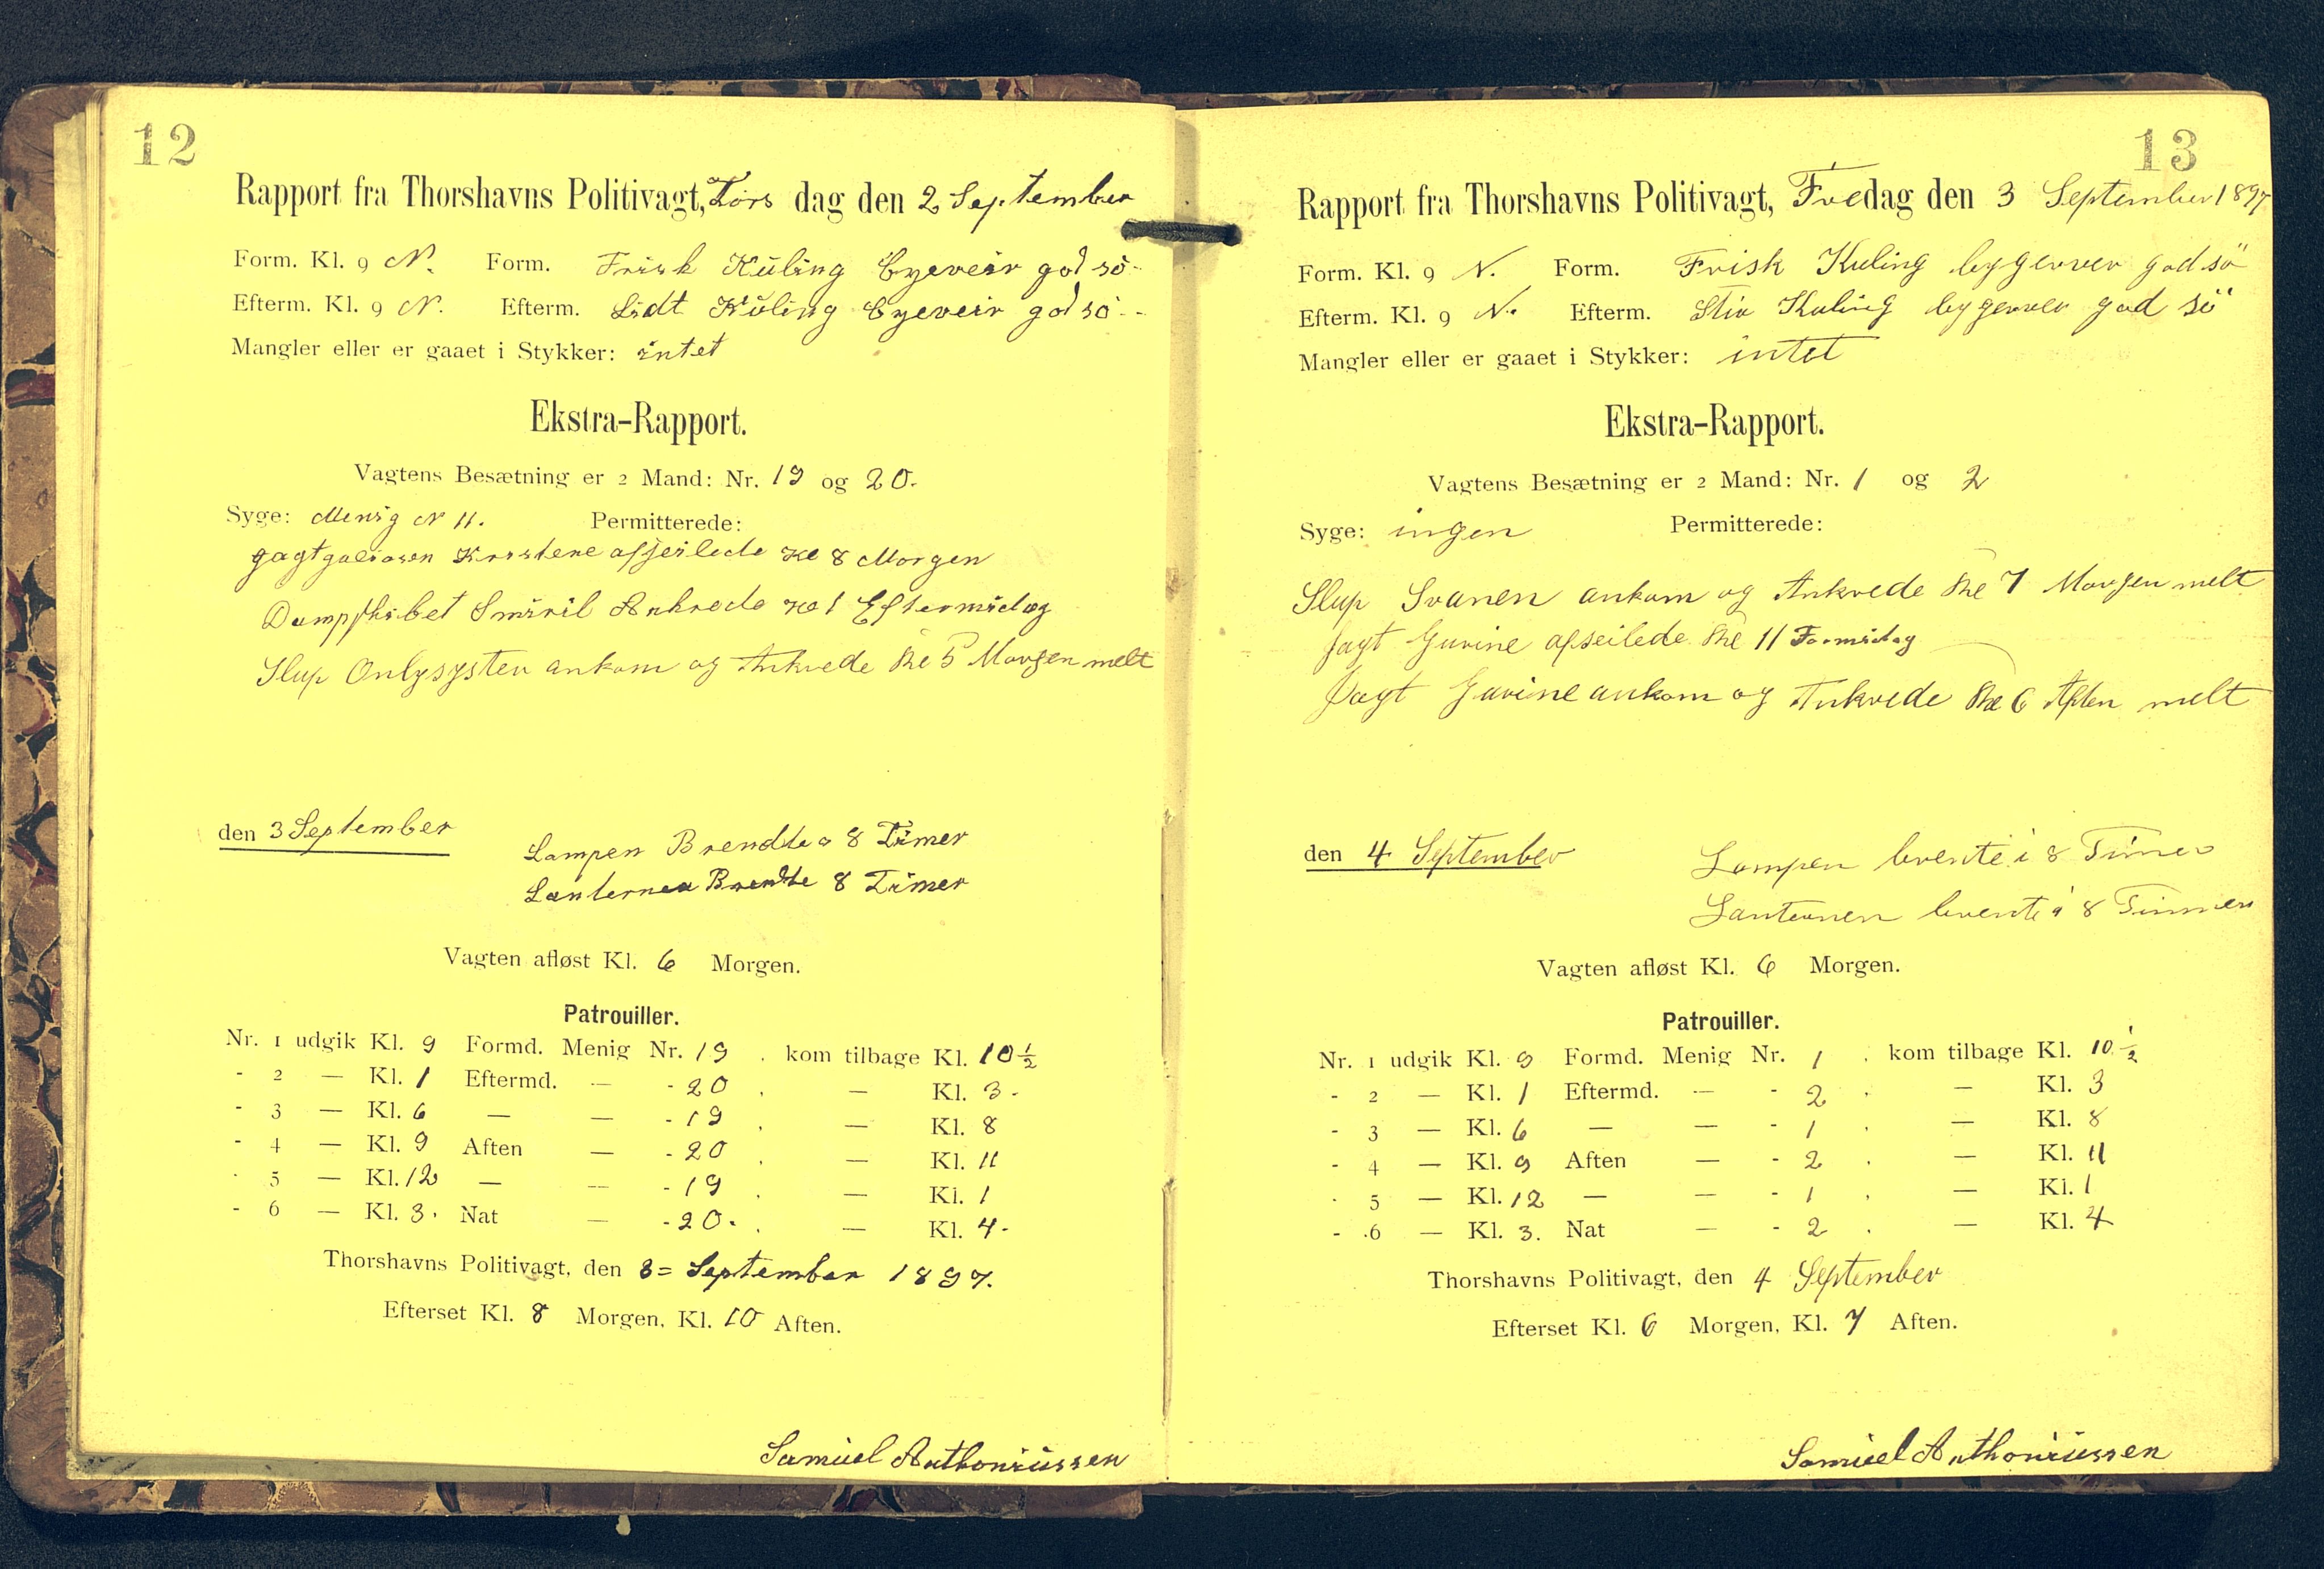 12
Rapport fra Thorshavns Politivagt, Tors dag den 2 September
Form. Kl. 9 N. Form. Frisk Kuling Byeveir god sö-
Efterm. Kl. 9 N. Efterm. Lidt Kuling Byeveir god sö--
Mangler eller er gaaet i Stykker: intet
Ekstra-Rapport.
Vagtens Besætning er 2 Mand: Nr. 19 og 20.
Syge: Menig N 11. Permitterede:
afseilede Kl 8 Morgen
Dampskibet Smiril Ankrede Kl 1 Eftermidag
Slup ankom og Ankrede Kl 5 Morgen melt
den 3 September
Lampen Brendte 8 Timer
Lanternen Brendte 8 Timer
Vagten afløst Kl. 6 Morgen.
Patrouiller.
Nr. 1 udgik Kl. 9 Formd. Menig Nr. 19 . kom tilbage Kl. 10 1/2
- 2 — Kl. 1 Eftermd. — - 20 . — Kl. 3 -
- 3 — Kl. 6 — — - 19 . — Kl. 8
- 4 — Kl. 9 Aften — - 20 . — Kl. 11
- 5 — Kl. 12 — — - 19 . — Kl. 1
- 6 — Kl. 3. Nat — - 20. . — Kl. 4-
Thorshavns Politivagt, den 3= September 1897.
Efterset Kl. 8 Morgen, Kl. 10 Aften.
Samuel Anthoniussen
13
Rapport fra Thorshavns Politivagt, Fredag den 3 September 1897
Form. Kl. 9 N. Form. Frisk Kuling bygerver god sö
Efterm. Kl. 9 N. Efterm. Stiv Kuling bygerver god sö
Mangler eller er gaaet i Stykker: intet
Ekstra-Rapport.
Vagtens Besætning er 2 Mand: Nr. 1 og 2
Syge: ingen Permitterede:
Slup Svanen ankom og Ankrede Kl 7 Morgen melt
Jagt afseilede Kl 11 Formidag
Jagt ankom og Ankrede Kl 6 Aften melt
den 4 September
Lampen brente i 8 Timer
Lanternen brente i 8 Timmer
Vagten afløst Kl. 6 Morgen.
Patrouiller.
Nr. 1 udgik Kl. 9 Formd. Menig Nr. 1 . kom tilbage Kl. 10 1/2
- 2 — Kl. 1 Eftermd. — - 2 . — Kl. 3
- 3 — Kl. 6 — — - 1 . — Kl. 8
- 4 — Kl. 9 Aften — - 2 . — Kl. 11
- 5 — Kl. 12 — — - 1 . — Kl. 1
- 6 — Kl. 3. Nat — - 2 . — Kl. 4
Thorshavns Politivagt, den 4 September
Efterset Kl. 6 Morgen, Kl. 7 Aften.
Samuel Anthoniussen